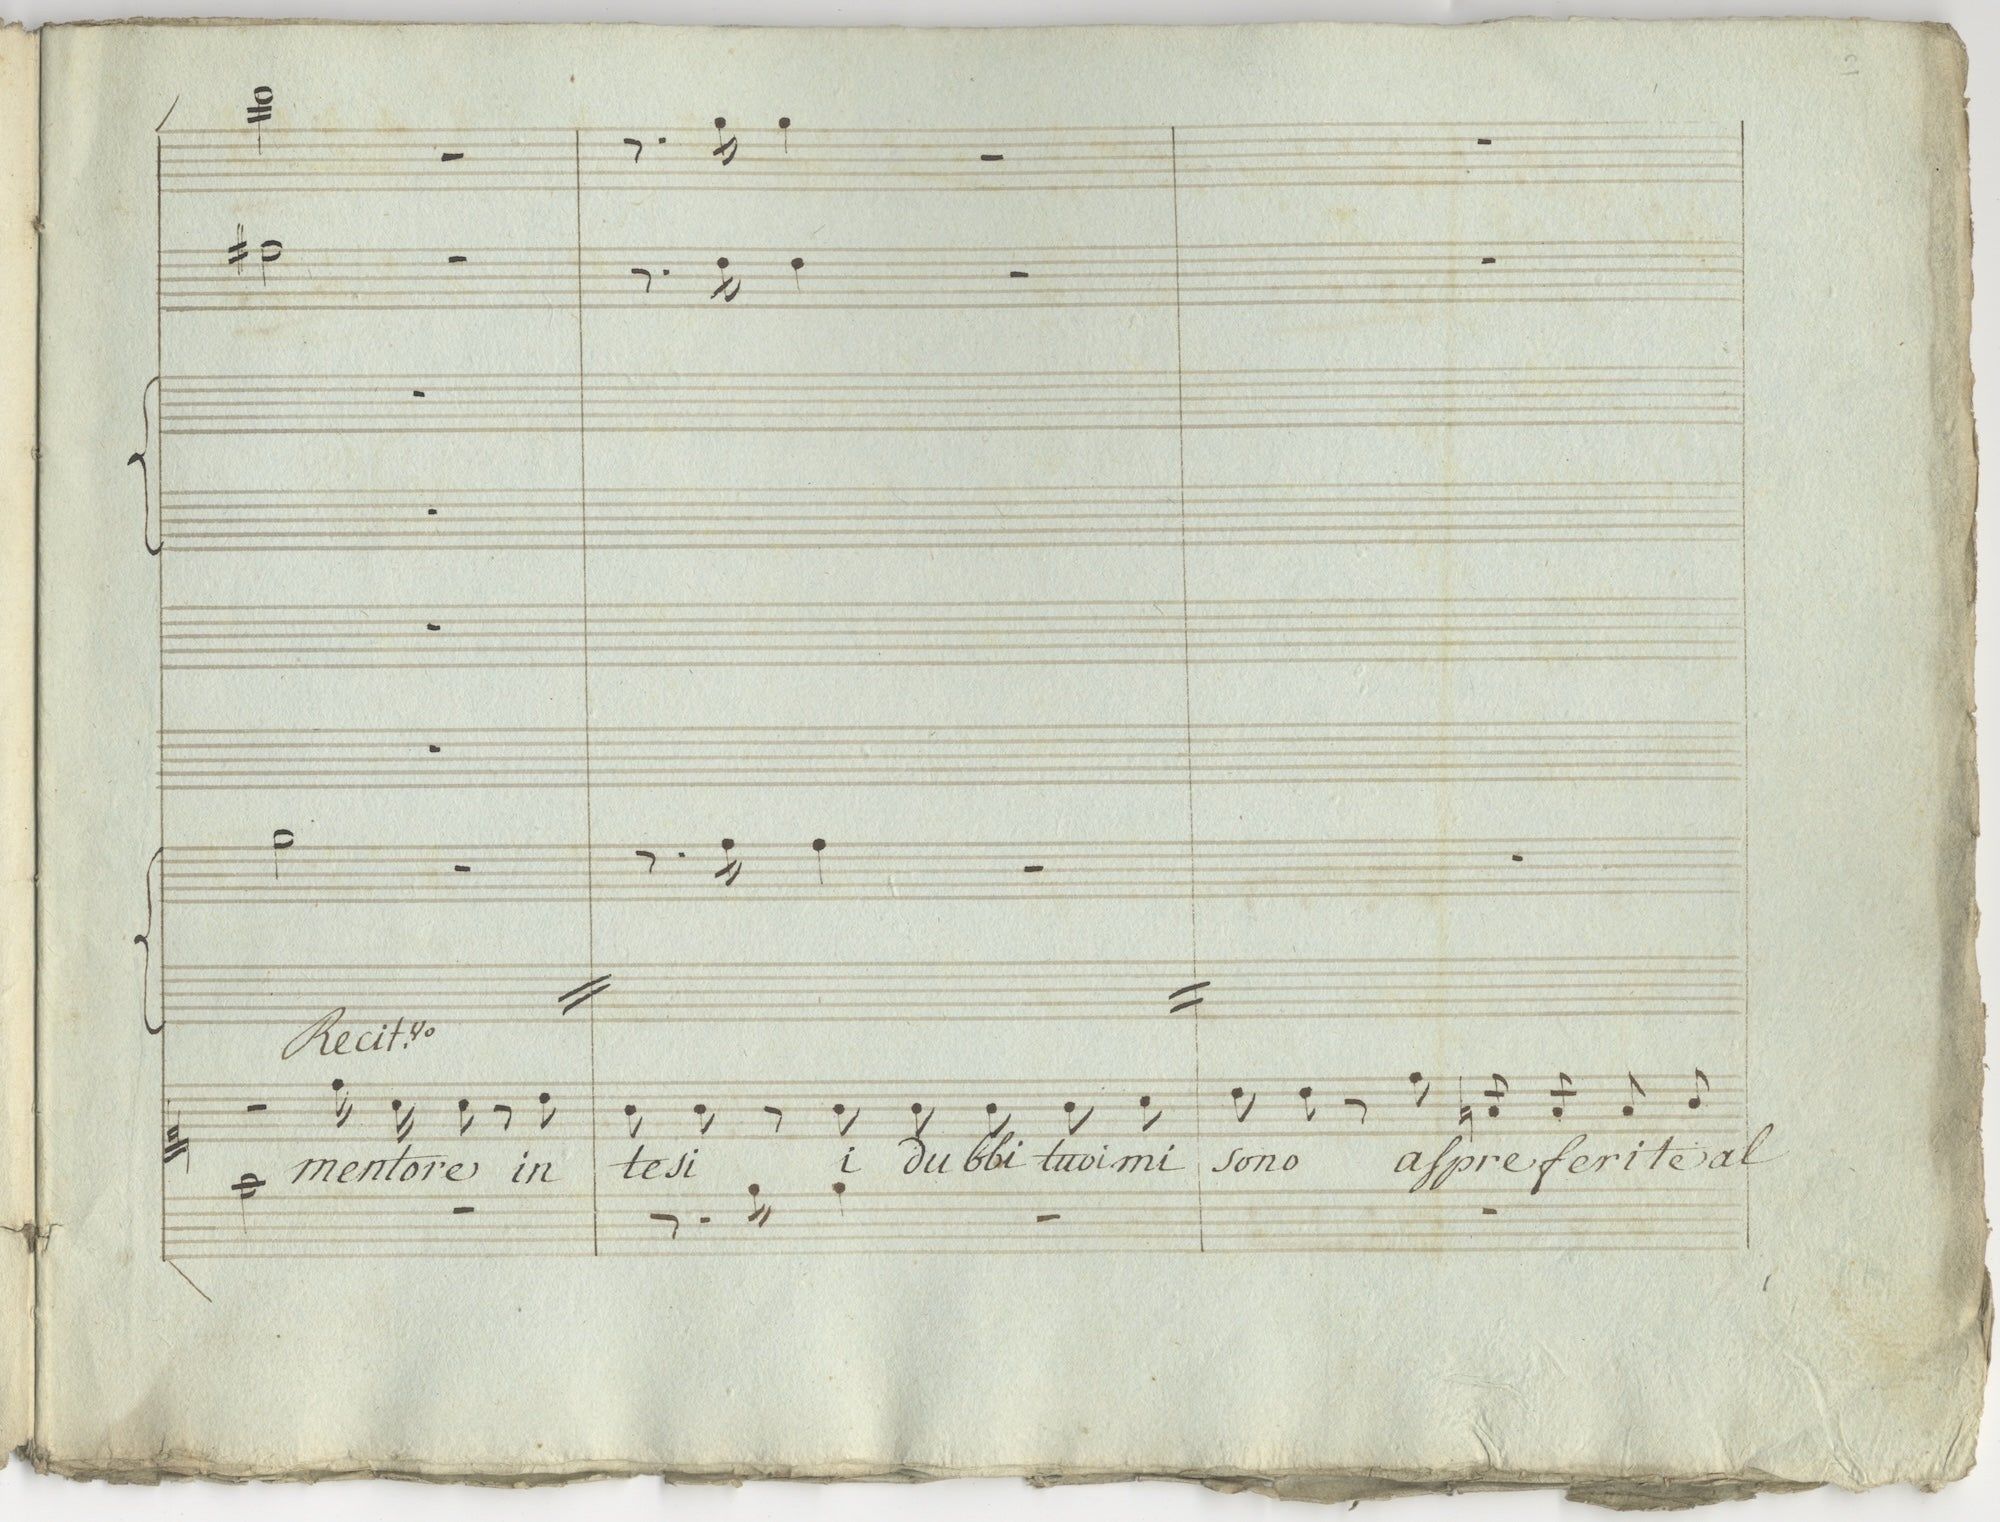 2
Recit.vo
mentore in tesi i du bbi tuoi mi sono aſpre ferite al